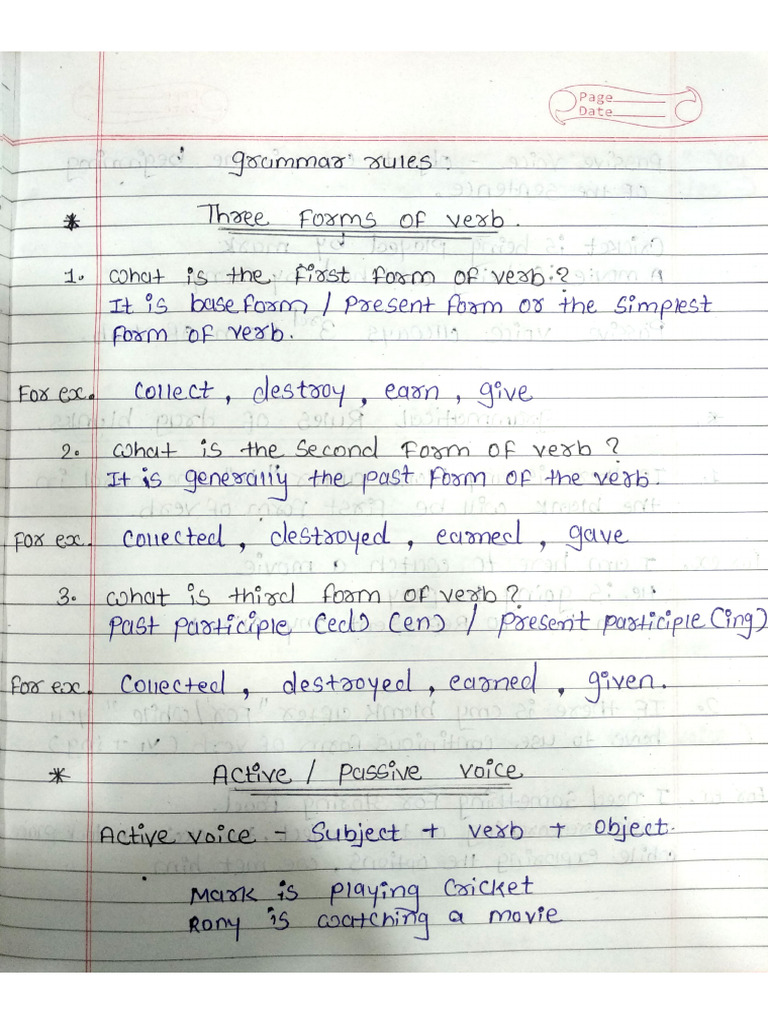 Page
Date
grammar rules.
* Three forms of verb.
1. What is the first form of verb?
It is base form / Present form or the simplest
form of verb.
For ex. Collect, destroy, earn, give
2. What is the second form of verb?
It is generally the past form of the verb.
For ex. Collected, destroyed, earned, gave
3. What is third form of verb?
Past participle (ed) (en) / Present participle (ing)
For ex. Collected, destroyed, earned, given.
* Active / Passive voice
Active voice - Subject + verb + object.
Mark is playing cricket
Rony is watching a movie